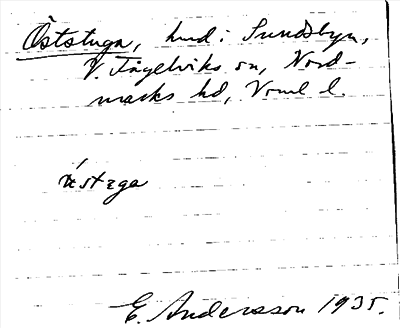 Öststuga, hmd. i Sundsbyn,
V. Fågelviks sn, Nord-
marks hd, Vrml l.
E. Andersson 1935.